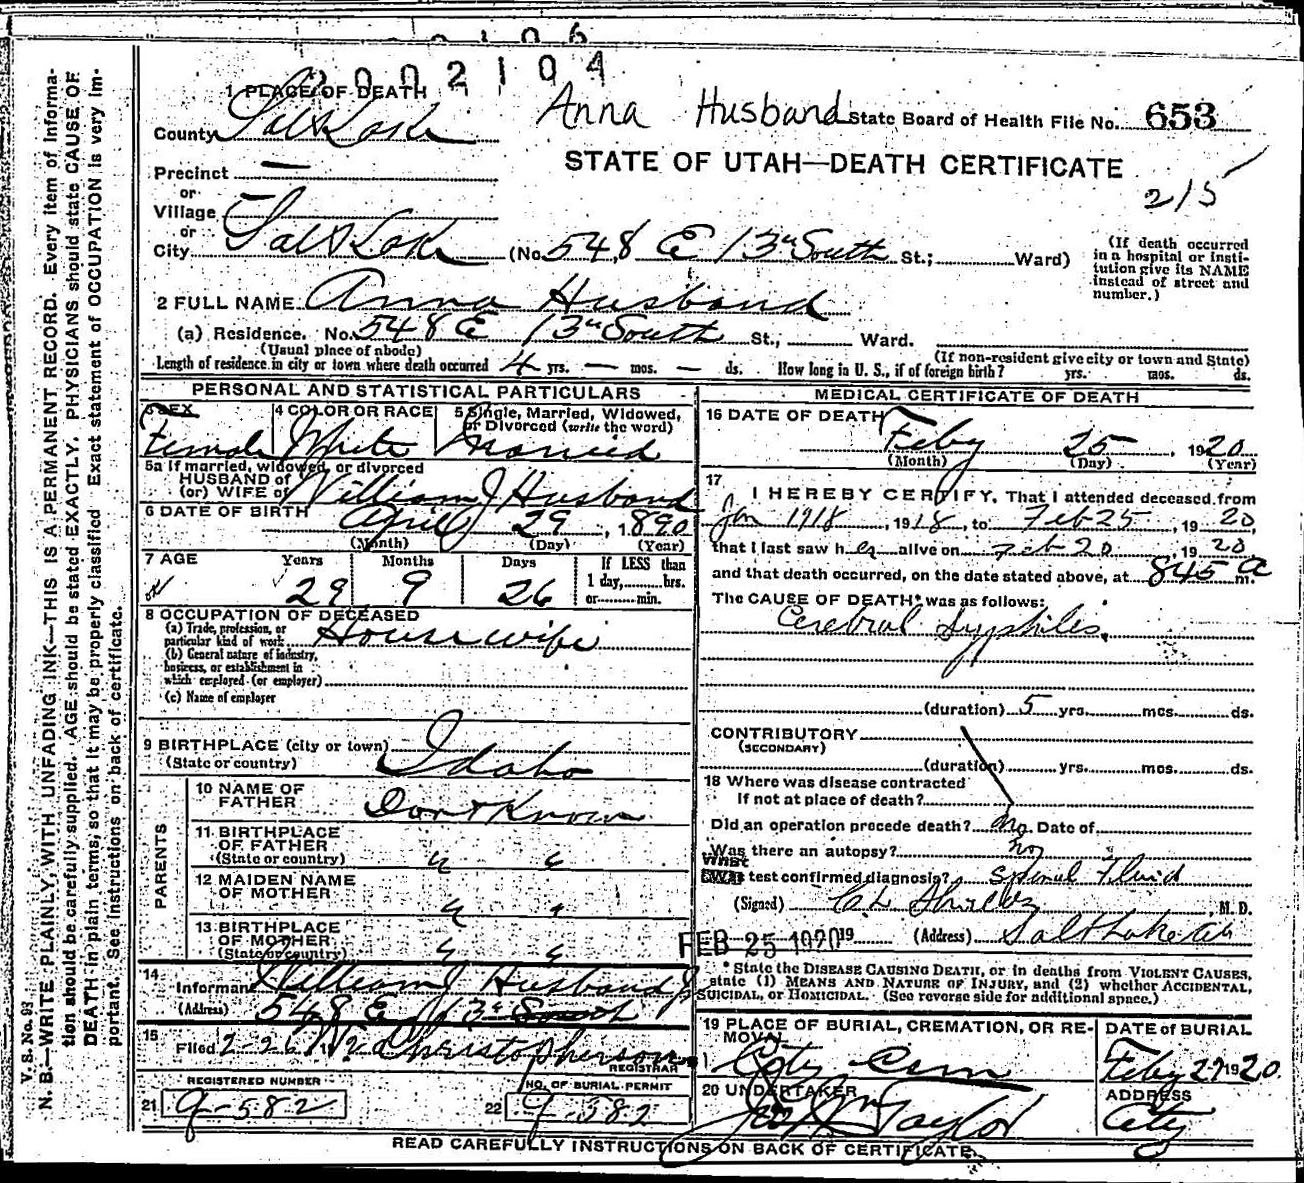 0 0 2 1 0 4
1 PLACE OF DEATH
Anna Husband State Board of Health File No. 653
County Salt Lake
STATE OF UTAH—DEATH CERTIFICATE
Precinct —
215
or
Village —
or
City Salt Lake (No. 548 E 13th South St.; Ward)
(If death occurred in a hospital or insti-
tution give its NAME
instead of street and
number.)
2 FULL NAME Anna Husband
(a) Residence. No. 548 E 13th South St., Ward.
(Usual place of abode) (If non-resident give city or town and State)
Length of residence in city or town where death occurred 4 yrs. — mos. — ds. How long in U. S., if of foreign birth? yrs. mos. ds.
PERSONAL AND STATISTICAL PARTICULARS
3 SEX Female
4 COLOR OR RACE White
5 Single, Married, Widowed,
or Divorced (write the word)
Married
5a If married, widowed, or divorced
HUSBAND of
(or) WIFE of William J Husband
6 DATE OF BIRTH April 29, 1890
(Month) (Day) (Year)
7 AGE Years Months Days If LESS than
29 9 26 1 day, hrs.
or min.
8 OCCUPATION OF DECEASED
(a) Trade, profession, or
particular kind of work Housewife
(b) General nature of industry,
business, or establishment in
which employed (or employer)
(c) Name of employer
9 BIRTHPLACE (city or town)
(State or country) Idaho
PARENTS
10 NAME OF
FATHER Dont Know
11 BIRTHPLACE
OF FATHER
(State or country) " "
12 MAIDEN NAME
OF MOTHER " "
13 BIRTHPLACE
OF MOTHER
(State or country) " "
14
Informant William J Husband Jr
(Address) 548 E 13th South
15
Filed 2-26 Christopherson
REGISTRAR
REGISTERED NUMBER
21 9-582
NO. OF BURIAL PERMIT
22 9-582
MEDICAL CERTIFICATE OF DEATH
16 DATE OF DEATH
Feby 25, 1920
(Month) (Day) (Year)
17
I HEREBY CERTIFY, That I attended deceased from
Jan 1918, 1918, to Feb 25, 1920,
that I last saw her alive on Feb 20 1920
and that death occurred, on the date stated above, at 845 a m.
The CAUSE OF DEATH* was as follows:
Cerebral Syphiles.
(duration) 5 yrs. mos. ds.
CONTRIBUTORY
(SECONDARY)
(duration) yrs. mos. ds.
18 Where was disease contracted
If not at place of death?
Did an operation precede death? No. Date of
Was there an autopsy? No
What test confirmed diagnosis? Spinal Fluid
(Signed) M. D.
FEB 25 1920 19 (Address) Salt Lake
* State the DISEASE CAUSING DEATH, or in deaths from VIOLENT CAUSES,
state (1) MEANS AND NATURE OF INJURY, and (2) whether ACCIDENTAL,
SUICIDAL, or HOMICIDAL. (See reverse side for additional space.)
19 PLACE OF BURIAL, CREMATION, OR RE-
MOVAL
City Cem
DATE of BURIAL
Feby 27 1920.
20 UNDERTAKER
Taylor
ADDRESS
City
READ CAREFULLY INSTRUCTIONS ON BACK OF CERTIFICATE.
V. S. No. 93.
N. B.—WRITE PLAINLY, WITH UNFADING INK—THIS IS A PERMANENT RECORD. Every item of informa-
tion should be carefully supplied. AGE should be stated EXACTLY. PHYSICIANS should state CAUSE OF
DEATH in plain terms, so that it may be properly classified. Exact statement of OCCUPATION is very im-
portant. See instructions on back of certificate.